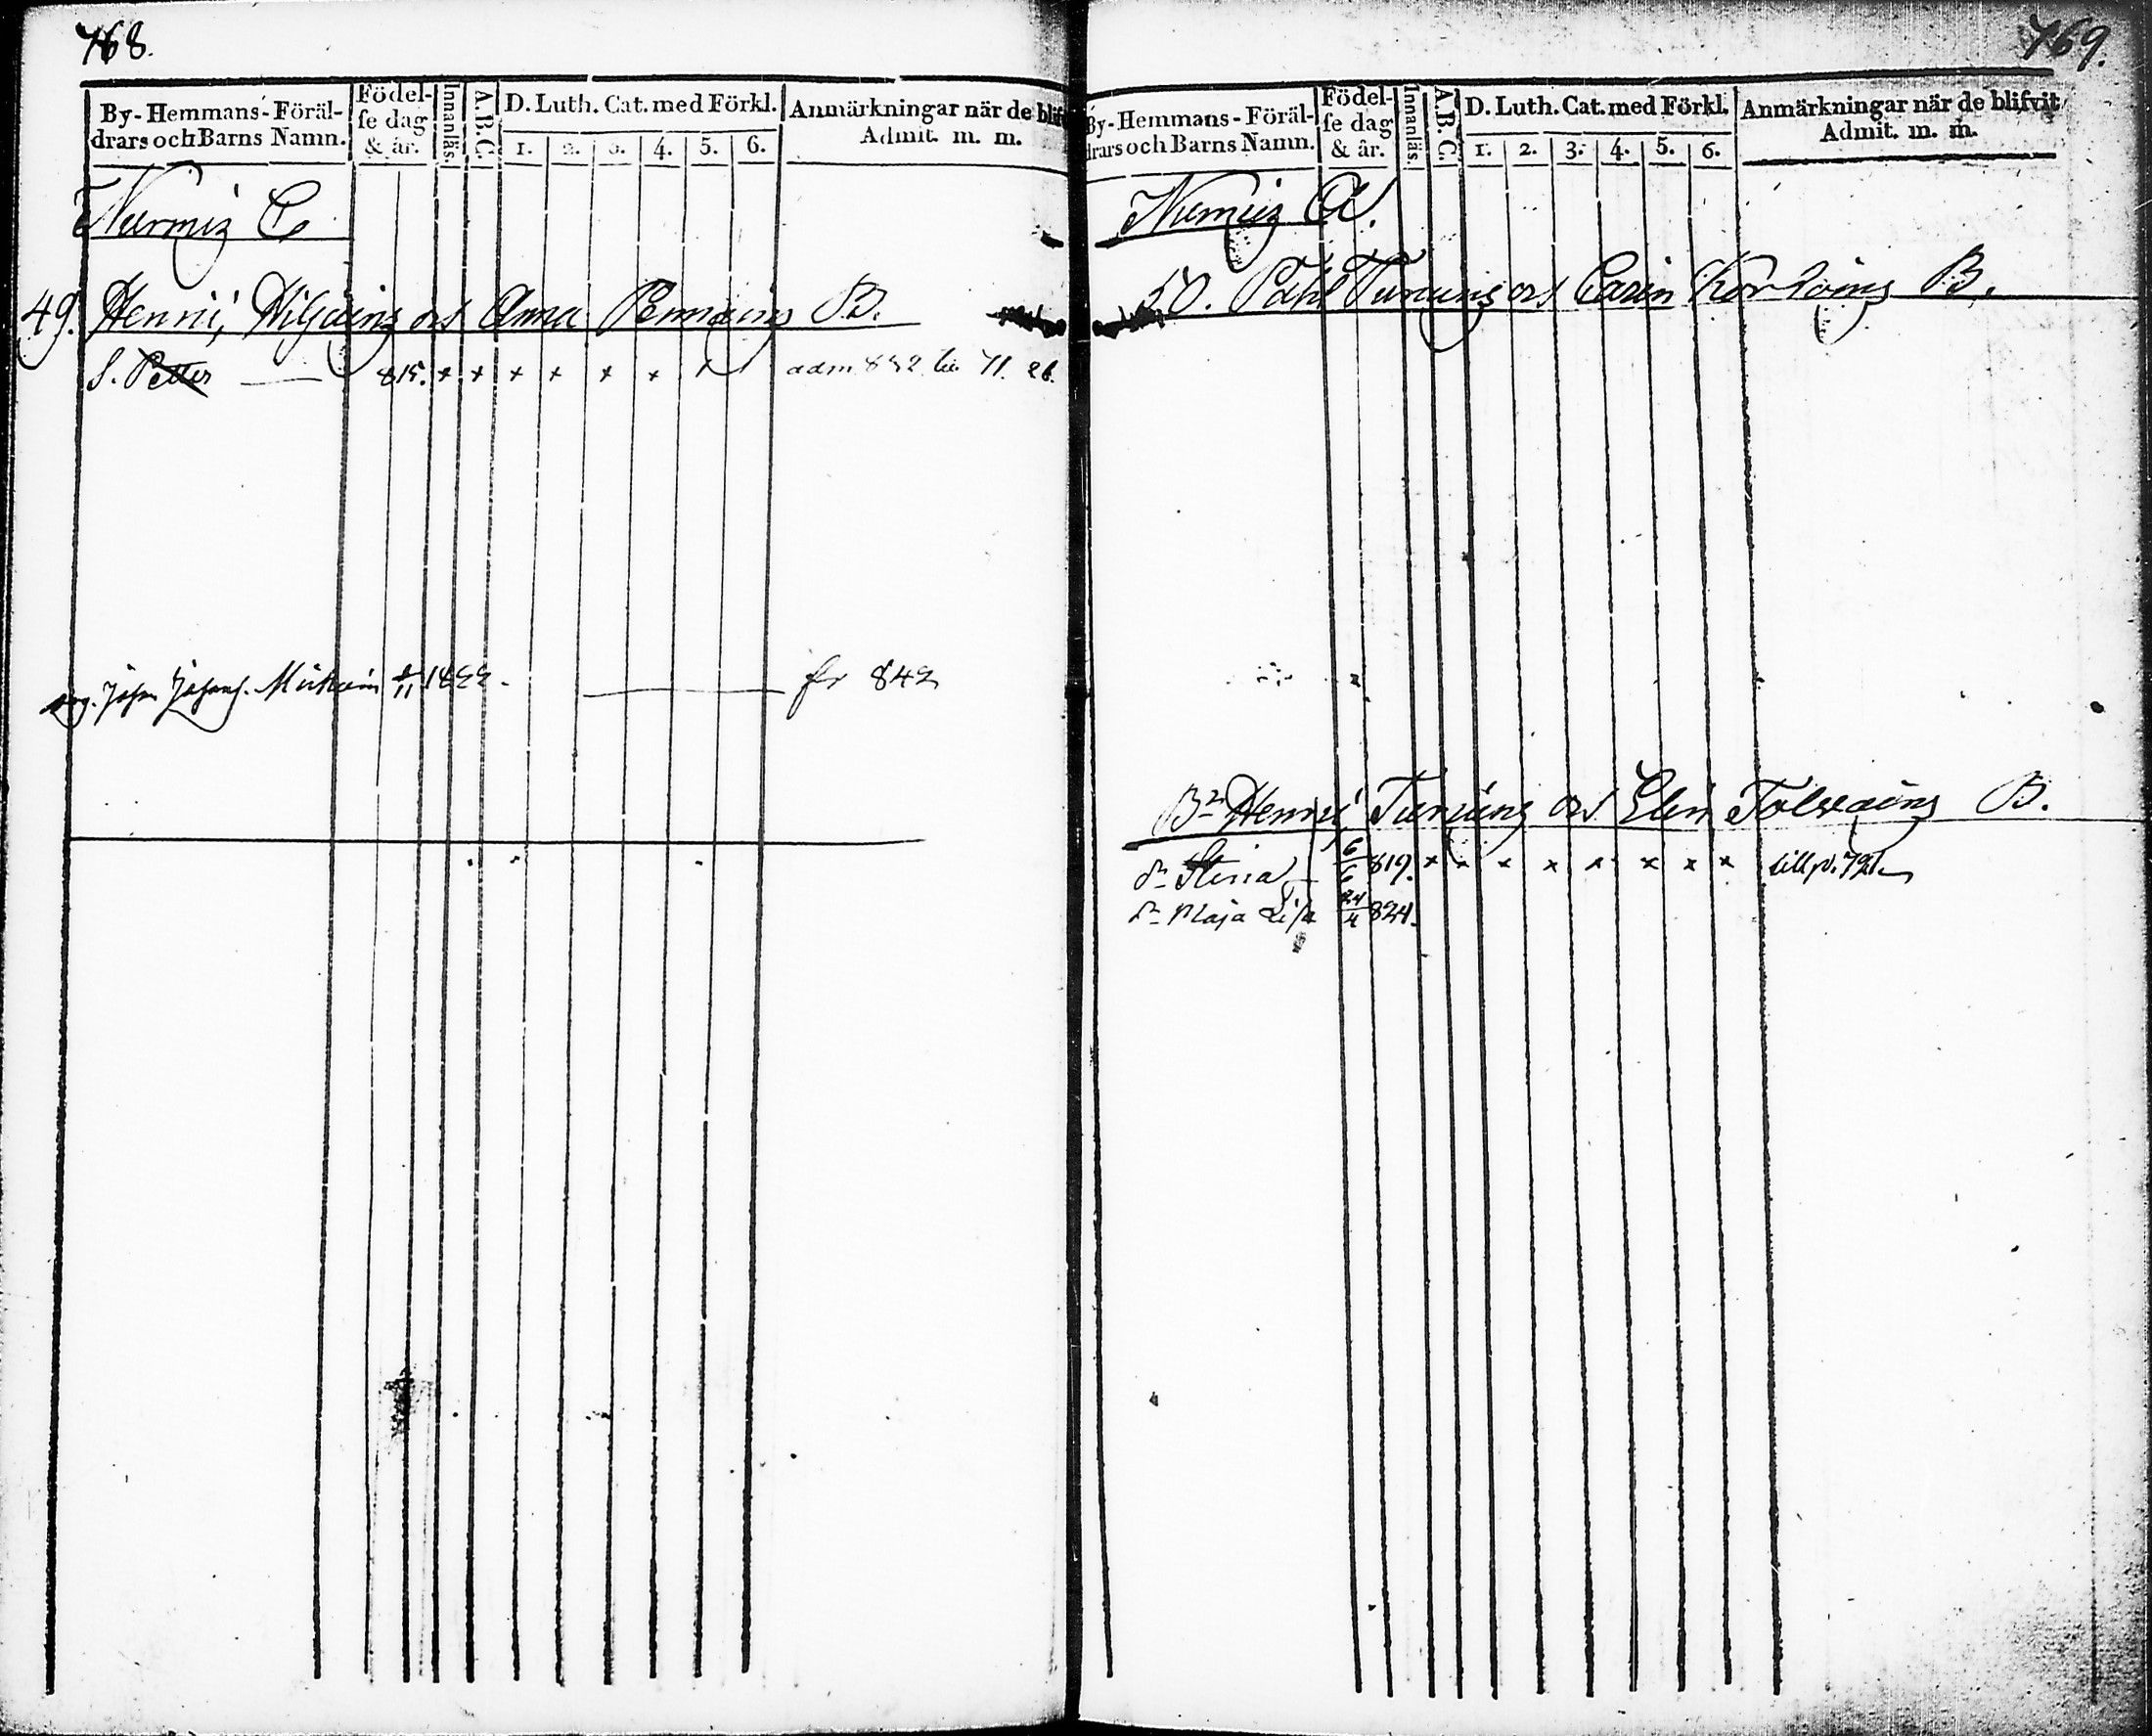 768.
By-Hemmans-Föräl-
drars och Barns Namn.
Födel-
se dag
& år.
Innanläs.
A.B.C.
D. Luth. Cat. med Förkl.
1. 2. 3. 4. 5. 6.
Anmärkningar när de blif
Admit. m. m.
Nurmis C
49. Henric Wiljains os Anna Pennains B.
S. Petter — 815. x x x x x x adm 832 71. 26.
Johan Johans. 11 1822. — fr 842
769.
By-Hemmans-Föräl-
drars och Barns Namn.
Födel-
se dag
& år.
Innanläs.
A.B.C.
D. Luth. Cat. med Förkl.
1. 2. 3. 4. 5. 6.
Anmärkningar när de blifvit
Admit. m. m.
Nurmis
50. Påhl Turuins os Carin B.
Br Henric Turuins os Elin Tolvains B.
Dr Stina 6/6 819. x x x x x x x x till p. 721.
Dr Maja Lisa 24/4 824.